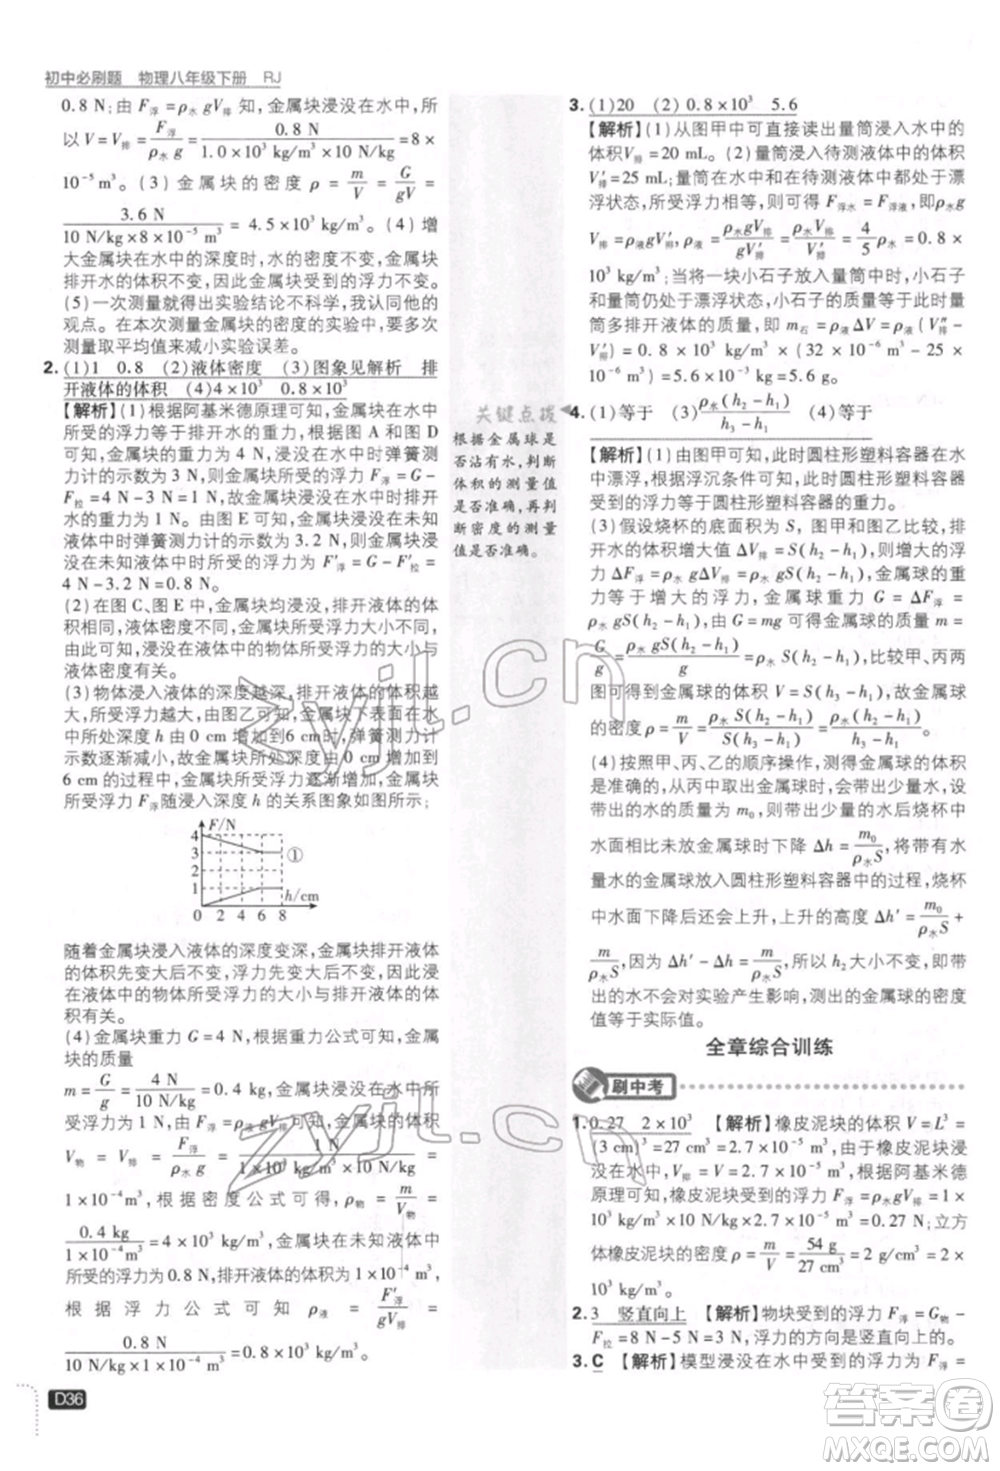 初中必刷题 物理八年级下册 RJ
0.8 N；由 F浮=ρ水 gV排 知，金属块浸没在水中，所
以 V=V排=F浮/(ρ水 g)=0.8 N/(1.0×10³ kg/m³×10 N/kg)=8×
10⁻⁵ m³。(3) 金属块的密度 ρ=m/V=G/(gV)=
3.6 N/(10 N/kg×8×10⁻⁵ m³)=4.5×10³ kg/m³。(4) 增
大金属块在水中的深度时，水的密度不变，金属块
排开水的体积不变，金属块受到的浮力不变。
(5)一次测量就得出实验结论不科学，我认同他的
观点。在本次测量金属块的密度的实验中，要多次
测量取平均值来减小实验误差。
2. (1)1 0.8 (2)液体密度 (3)图象见解析 排
开液体的体积 (4)4×10³ 0.8×10³
【解析】(1)根据阿基米德原理可知，金属块在水中
所受的浮力等于排开水的重力，由图 A 和图 D 可
知，金属块的重力为 4 N，浸没在水中时弹簧测
力计的示数为 3 N，故金属块所受的浮力 F浮=G-
F拉=4 N-3 N=1 N，故金属块浸没在水中时排开
水的重力为 1 N。由图 E 可知，金属块浸没在未知
液体中时弹簧测力计的示数为 3.2 N，故金属块浸
没在未知液体中时所受的浮力为 F′浮=G-F′拉=
4 N-3.2 N=0.8 N。
(2)在图 C、图 E 中，金属块均浸没，排开液体的体
积相同，液体的密度不同，金属块所受的浮力不同，
由此可知，浸没在液体中的物体所受浮力的大小与
液体密度有关。
(3)物体浸入液体的深度越深，排开液体的体积越
大，所受浮力越大，由图乙可知，金属块下表面在水
中所处深度 h 由 0 cm 增加到6 cm 时，弹簧测力计
示数逐渐减小，故金属块下表面所处深度由 0 cm 到
6 cm 的过程中，金属块所受浮力逐渐增加，金属块
所受浮力 F浮随浸入深度 h 的关系图象如图所示；
F/N
4
3
2
1
①
h/cm
0 2 4 6 8
随着金属块浸入液体的深度变深，金属块排开液体
的体积先变大后不变，浮力先变大后不变，因此浸
在液体中的物体所受浮力的大小与排开液体的体积
有关。
(4)金属块重力 G=4 N，根据重力公式可知，金属
块的质量
m=G/g=4 N/(10 N/kg)=0.4 kg，金属块在水中所受
浮力为 1 N，根据浮力公式可知，金属块的体积
V物=V排=F浮/(ρ水 g)=1 N/(1×10³ kg/m³×10 N/kg)=1×
10⁻⁴ m³，根据密度公式可得，ρ物=m/V物=
0.4 kg/(1×10⁻⁴ m³)=4×10³ kg/m³，金属块在未知液体中
所受的浮力为0.8 N，排开液体的体积为1×10⁻⁴ m³，
根据浮力公式可知 ρ液=F′浮/(gV排)=
0.8 N/(10 N/kg×1×10⁻⁴ m³)=0.8×10³ kg/m³。
D36
关键点拨
根据金属球是
否沾有水，判断
体积的测量值
是否准确，再判
断密度的测量
值是否准确。
3. (1)20 (2)0.8×10³ 5.6
【解析】(1)从图甲中可直接读出量筒浸入水中的
体积V排=20 mL。(2)量筒浸入待测液体中的体积
V′排=25 mL；量筒在水中和在待测液体中都处于漂
浮状态，所受浮力相等，则可得 F浮水=F浮液，即ρ水g
V排=ρ液 gV′排，ρ液=ρ水gV排/(gV′排)=ρ水V排/V′排=4/5 ρ水=0.8×
10³ kg/m³；当将一块小石子放入量筒中时，小石子
和量筒仍处于漂浮状态，小石子的质量等于此时量
筒多排开液体的质量，即 m石=ρ液ΔV=ρ液(V″排-
V′排)=0.8×10³ kg/m³×(32×10⁻⁶ m³-25×
10⁻⁶ m³)=5.6×10⁻³ kg=5.6 g。
4. (1)等于 (3)ρ水(h₂-h₁)/(h₃-h₁) (4)等于
【解析】(1)由图甲可知，此时圆柱形塑料容器在水
中漂浮，根据浮沉条件可知，此时圆柱形塑料容器
受到的浮力等于圆柱形塑料容器的重力。
(3)假设烧杯的底面积为 S，图甲和图乙比较，排
开水的体积增大值 ΔV排=S(h₂-h₁)，则增大的浮
力 ΔF浮=ρ水 gΔV排=ρ水 gS(h₂-h₁)，金属球的重
力等于增大的浮力，金属球重力 G=ΔF浮=
ρ水 gS(h₂-h₁)，由 G=mg 可得金属球的质量 m=
G/g=ρ水 gS(h₂-h₁)/g=ρ水 S(h₂-h₁)，比较甲、丙两
图可得到金属球的体积 V=S(h₃-h₁)，故金属球
的密度 ρ=m/V=ρ水 S(h₂-h₁)/S(h₃-h₁)=ρ水(h₂-h₁)/(h₃-h₁)。
(4)若按照甲、丙、乙的顺序操作，测量完丙图后，
将金属球从水中取出，金属球会带出少量水，设
带出的水的质量为 m₀，则带出少量的水后烧杯中
水面相比未放金属块时下降 Δh=m₀/(ρ水S)，将带有水
量水的金属球放入圆柱形塑料容器中后，烧杯中
水面下降后还会上升，上升的高度 Δh′=m₀/(ρ水S)+
Δh，由于 Δh′-Δh=m₀/(ρ水S)+Δh-Δh=m₀/(ρ水S)，故带
出的水不会对实验产生影响，测出的金属球的密度
值等于实际值。
全章综合训练
刷中考
1. 0.27 2×10³ 【解析】橡皮泥块的体积 V=L³=
(3 cm)³=27 cm³=2.7×10⁻⁵ m³，因为橡皮泥块浸
没在水中，V排=V=2.7×10⁻⁵ m³，根据阿基米德
原理可知，橡皮泥块受到的浮力 F浮=ρ水 gV排=1×
10³ kg/m³×10 N/kg×2.7×10⁻⁵ m³=0.27 N；立方
体橡皮泥块的密度 ρ=m/V=54 g/27 cm³=2 g/cm³=2×
10³ kg/m³。
2. 3 竖直向上 【解析】物块受到的浮力 F浮=G物-
F拉=8 N-5 N=3 N，浮力的方向是竖直向上的。
3. C 【解析】模型浸没在水中受到的浮力为 F浮=
zyjl.cn
zyjl.cn
答案圈
MXQE.COM